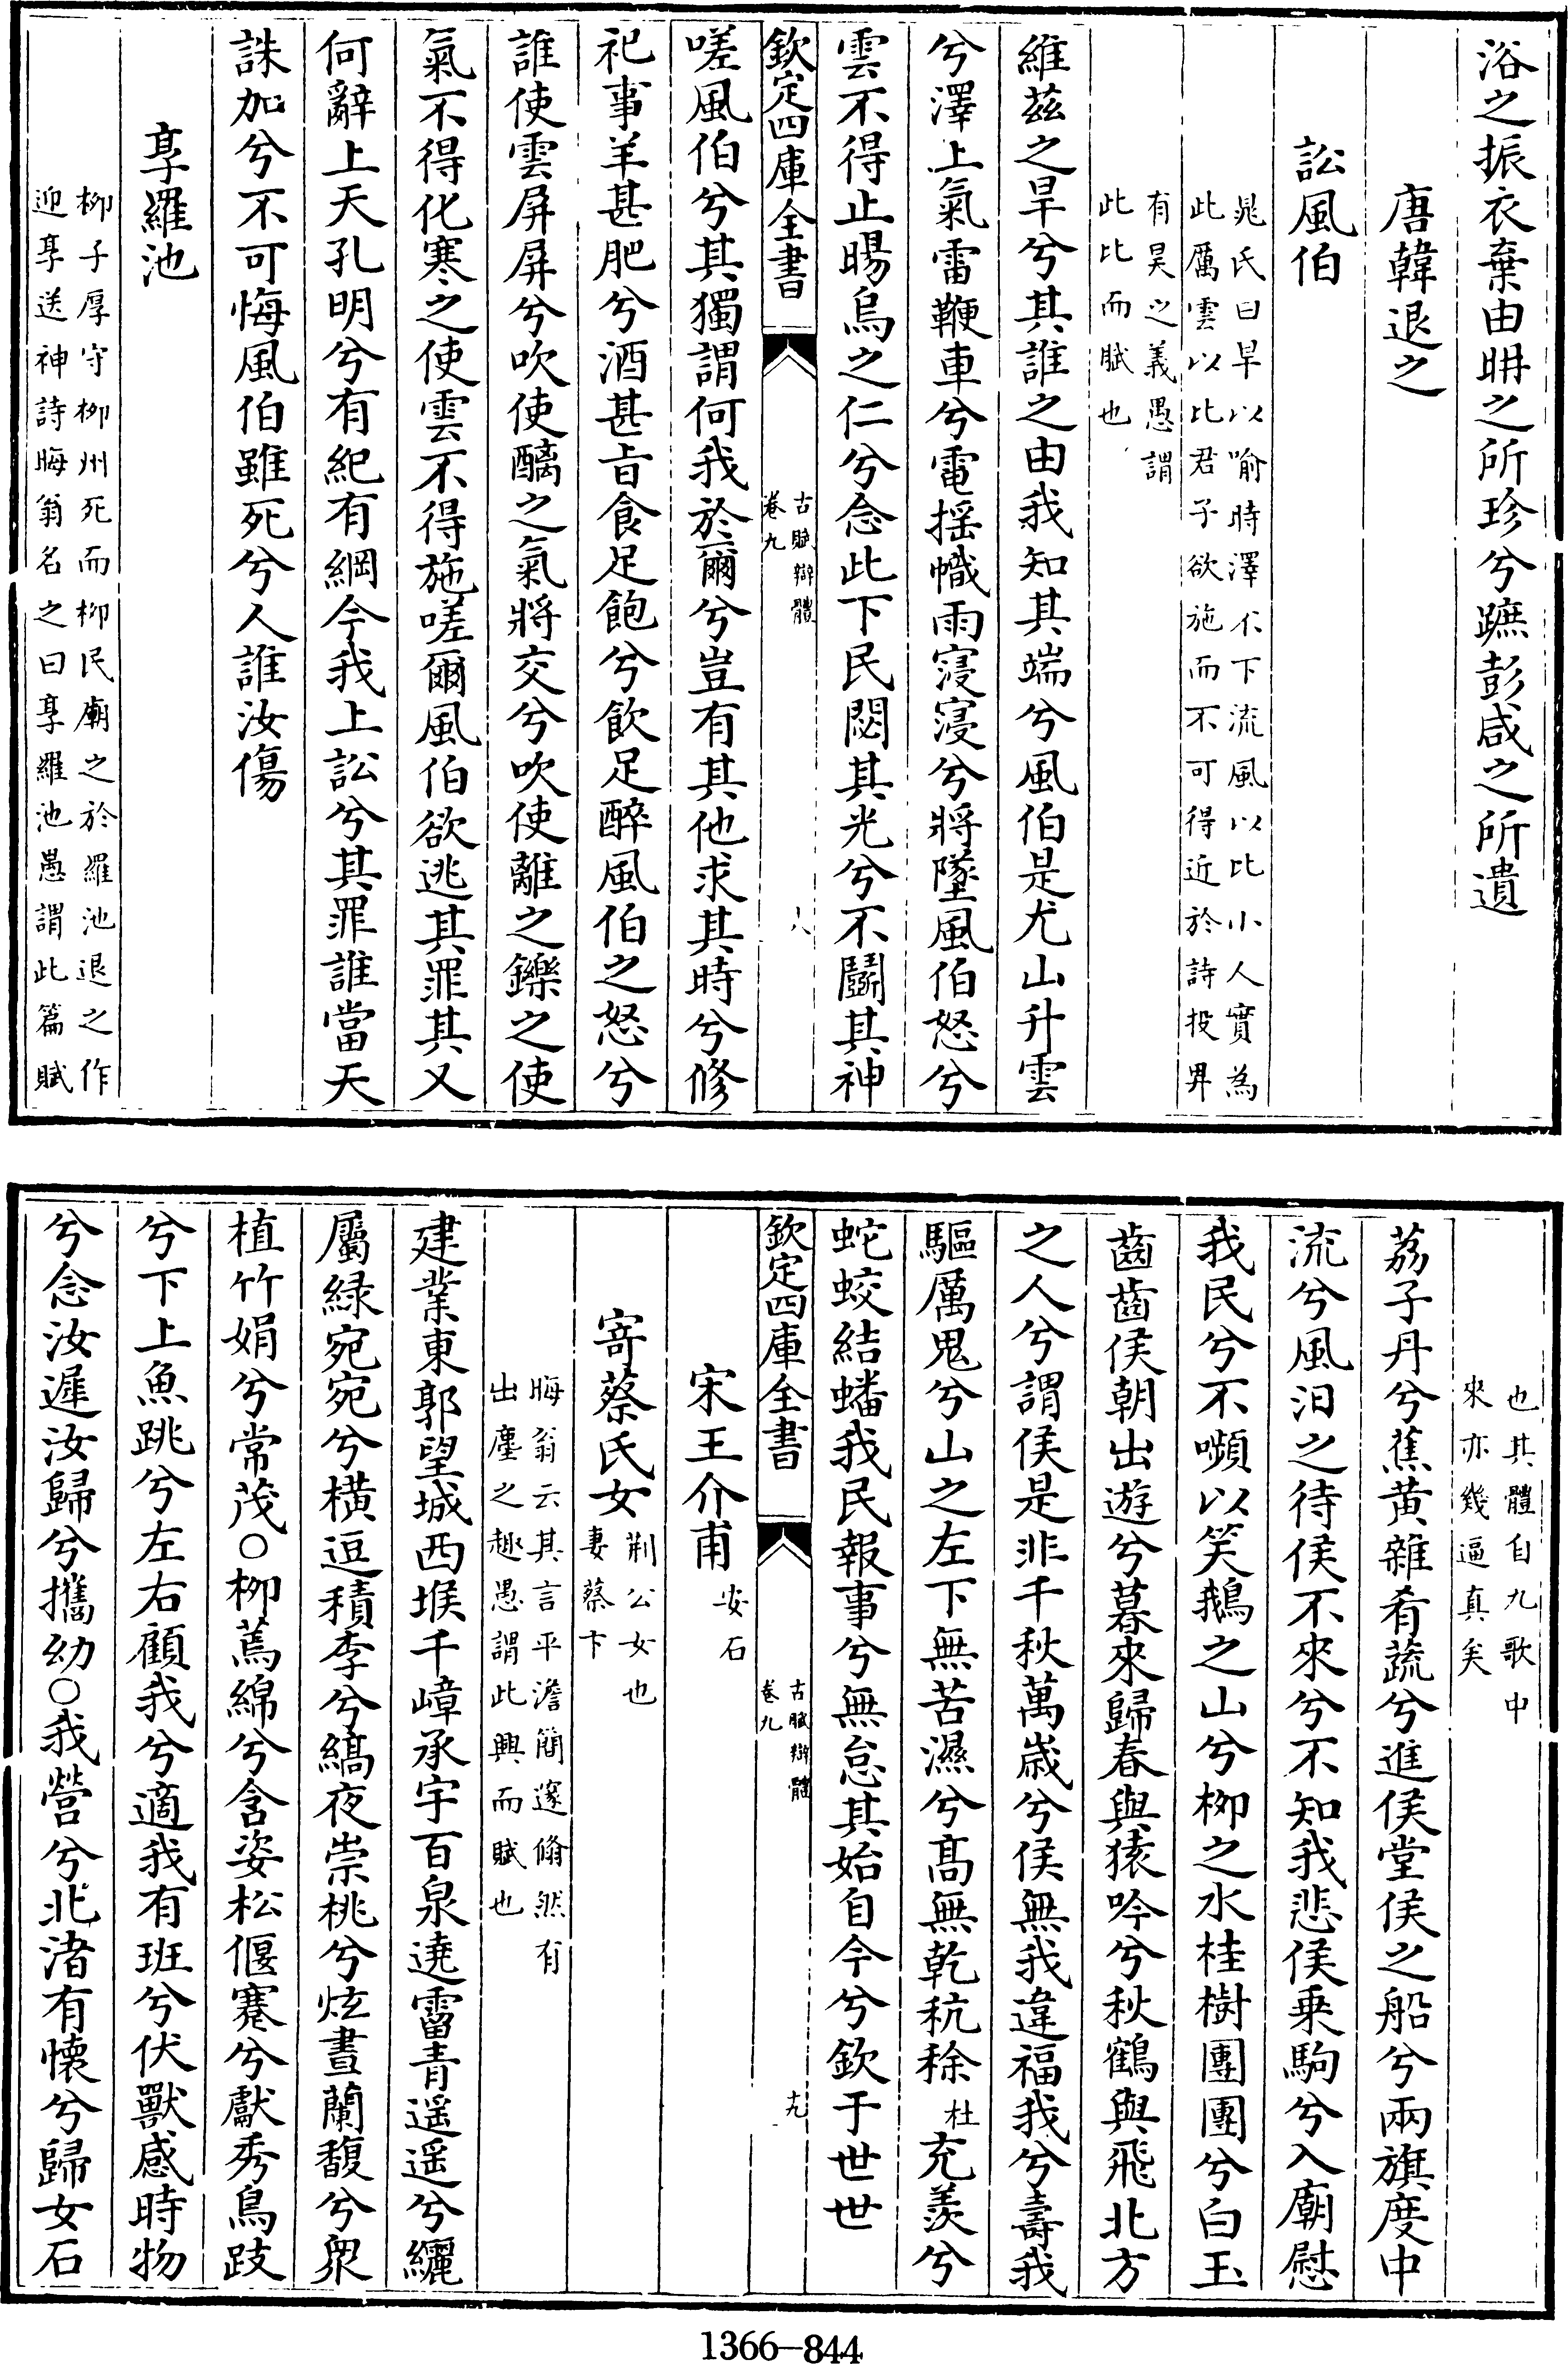 浴之振衣棄由聃之所珍兮蹠彭咸之所遺
唐韓退之
訟風伯
晁氏曰旱以喻時澤不下流風以比小人實為
此厲雲以比君子欲施而不可得近於詩投畀
有昊之義愚謂
此比而賦也
維茲之旱兮其誰之由我知其端兮風伯是尤山升雲
兮澤上氣雷鞭車兮電揺幟雨寖寖兮將墜風伯怒兮
雲不得止暘烏之仁兮念此下民閟其光兮不鬬其神
欽定四庫全書
古賦辯體
卷九
八
嗟風伯兮其獨謂何我於爾兮豈有其他求其時兮修
祀事羊甚肥兮酒甚㫖食足飽兮飲足醉風伯之怒兮
誰使雲屏屏兮吹使醨之氣將交兮吹使離之鑠之使
氣不得化寒之使雲不得施嗟爾風伯欲逃其罪其又
何辭上天孔明兮有紀有綱今我上訟兮其罪誰當天
誅加兮不可悔風伯雖死兮人誰汝傷
享羅池
柳子厚守柳州死而柳民廟之於羅池退之作
迎享送神詩晦翁名之曰享羅池愚謂此篇賦
也其體自九歌中
來亦幾逼真矣
荔子丹兮蕉黄雜肴蔬兮進侯堂侯之船兮兩旗度中
流兮風汩之待侯不來兮不知我悲侯乗駒兮入廟慰
我民兮不嚬以笑鵝之山兮柳之水桂樹團團兮白玉
齒齒侯朝出遊兮暮來歸春與猿吟兮秋鶴與飛北方
之人兮謂侯是非千秋萬歳兮侯無我違福我兮壽我
驅厲鬼兮山之左下無苦濕兮髙無乾秔稌杜充羨兮
蛇蛟結蟠我民報事兮無怠其始自今兮欽于世世
欽定四庫全書
古賦辯體
卷九
十九
宋王介甫安石
寄蔡氏女
荆公女也
妻蔡卞
晦翁云其言平澹簡邃翛然有
出塵之趣愚謂此興而賦也
建業東郭望城西堠千嶂承宇百泉遶霤青遥遥兮纚
屬緑宛宛兮横逗積李兮縞夜崇桃兮炫晝蘭馥兮衆
植竹娟兮常茂○栁蔫綿兮含姿松偃蹇兮獻秀鳥跂
兮下上魚跳兮左右顧我兮適我有班兮伏獸感時物
兮念汝遲汝歸兮攜幼○我營兮北渚有懐兮歸女石
1366-844